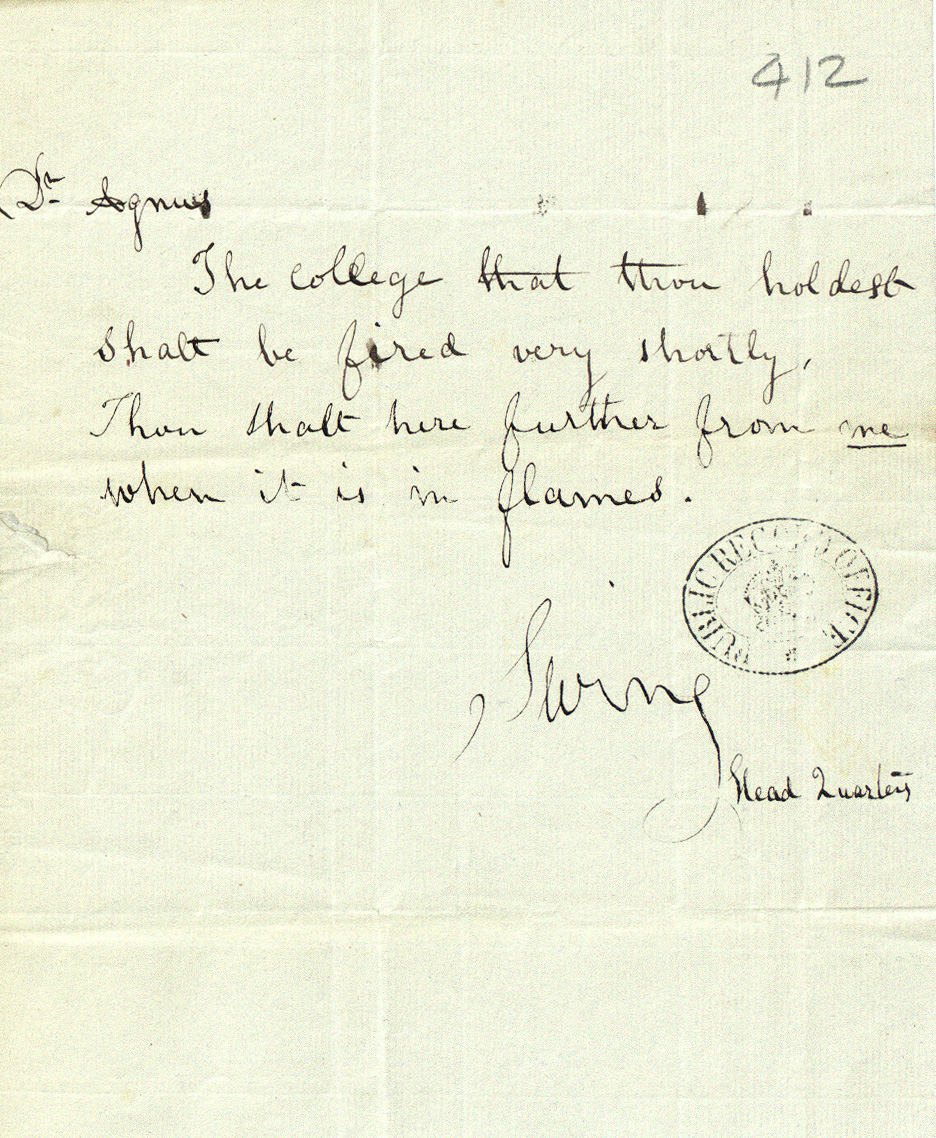 412
Dr. Agnus
The college that thou holdest
shalt be fired very shortly.
Thou shalt here further from me
when it is in flames.
PUBLIC RECORD OFFICE
Swing
Head Quarters